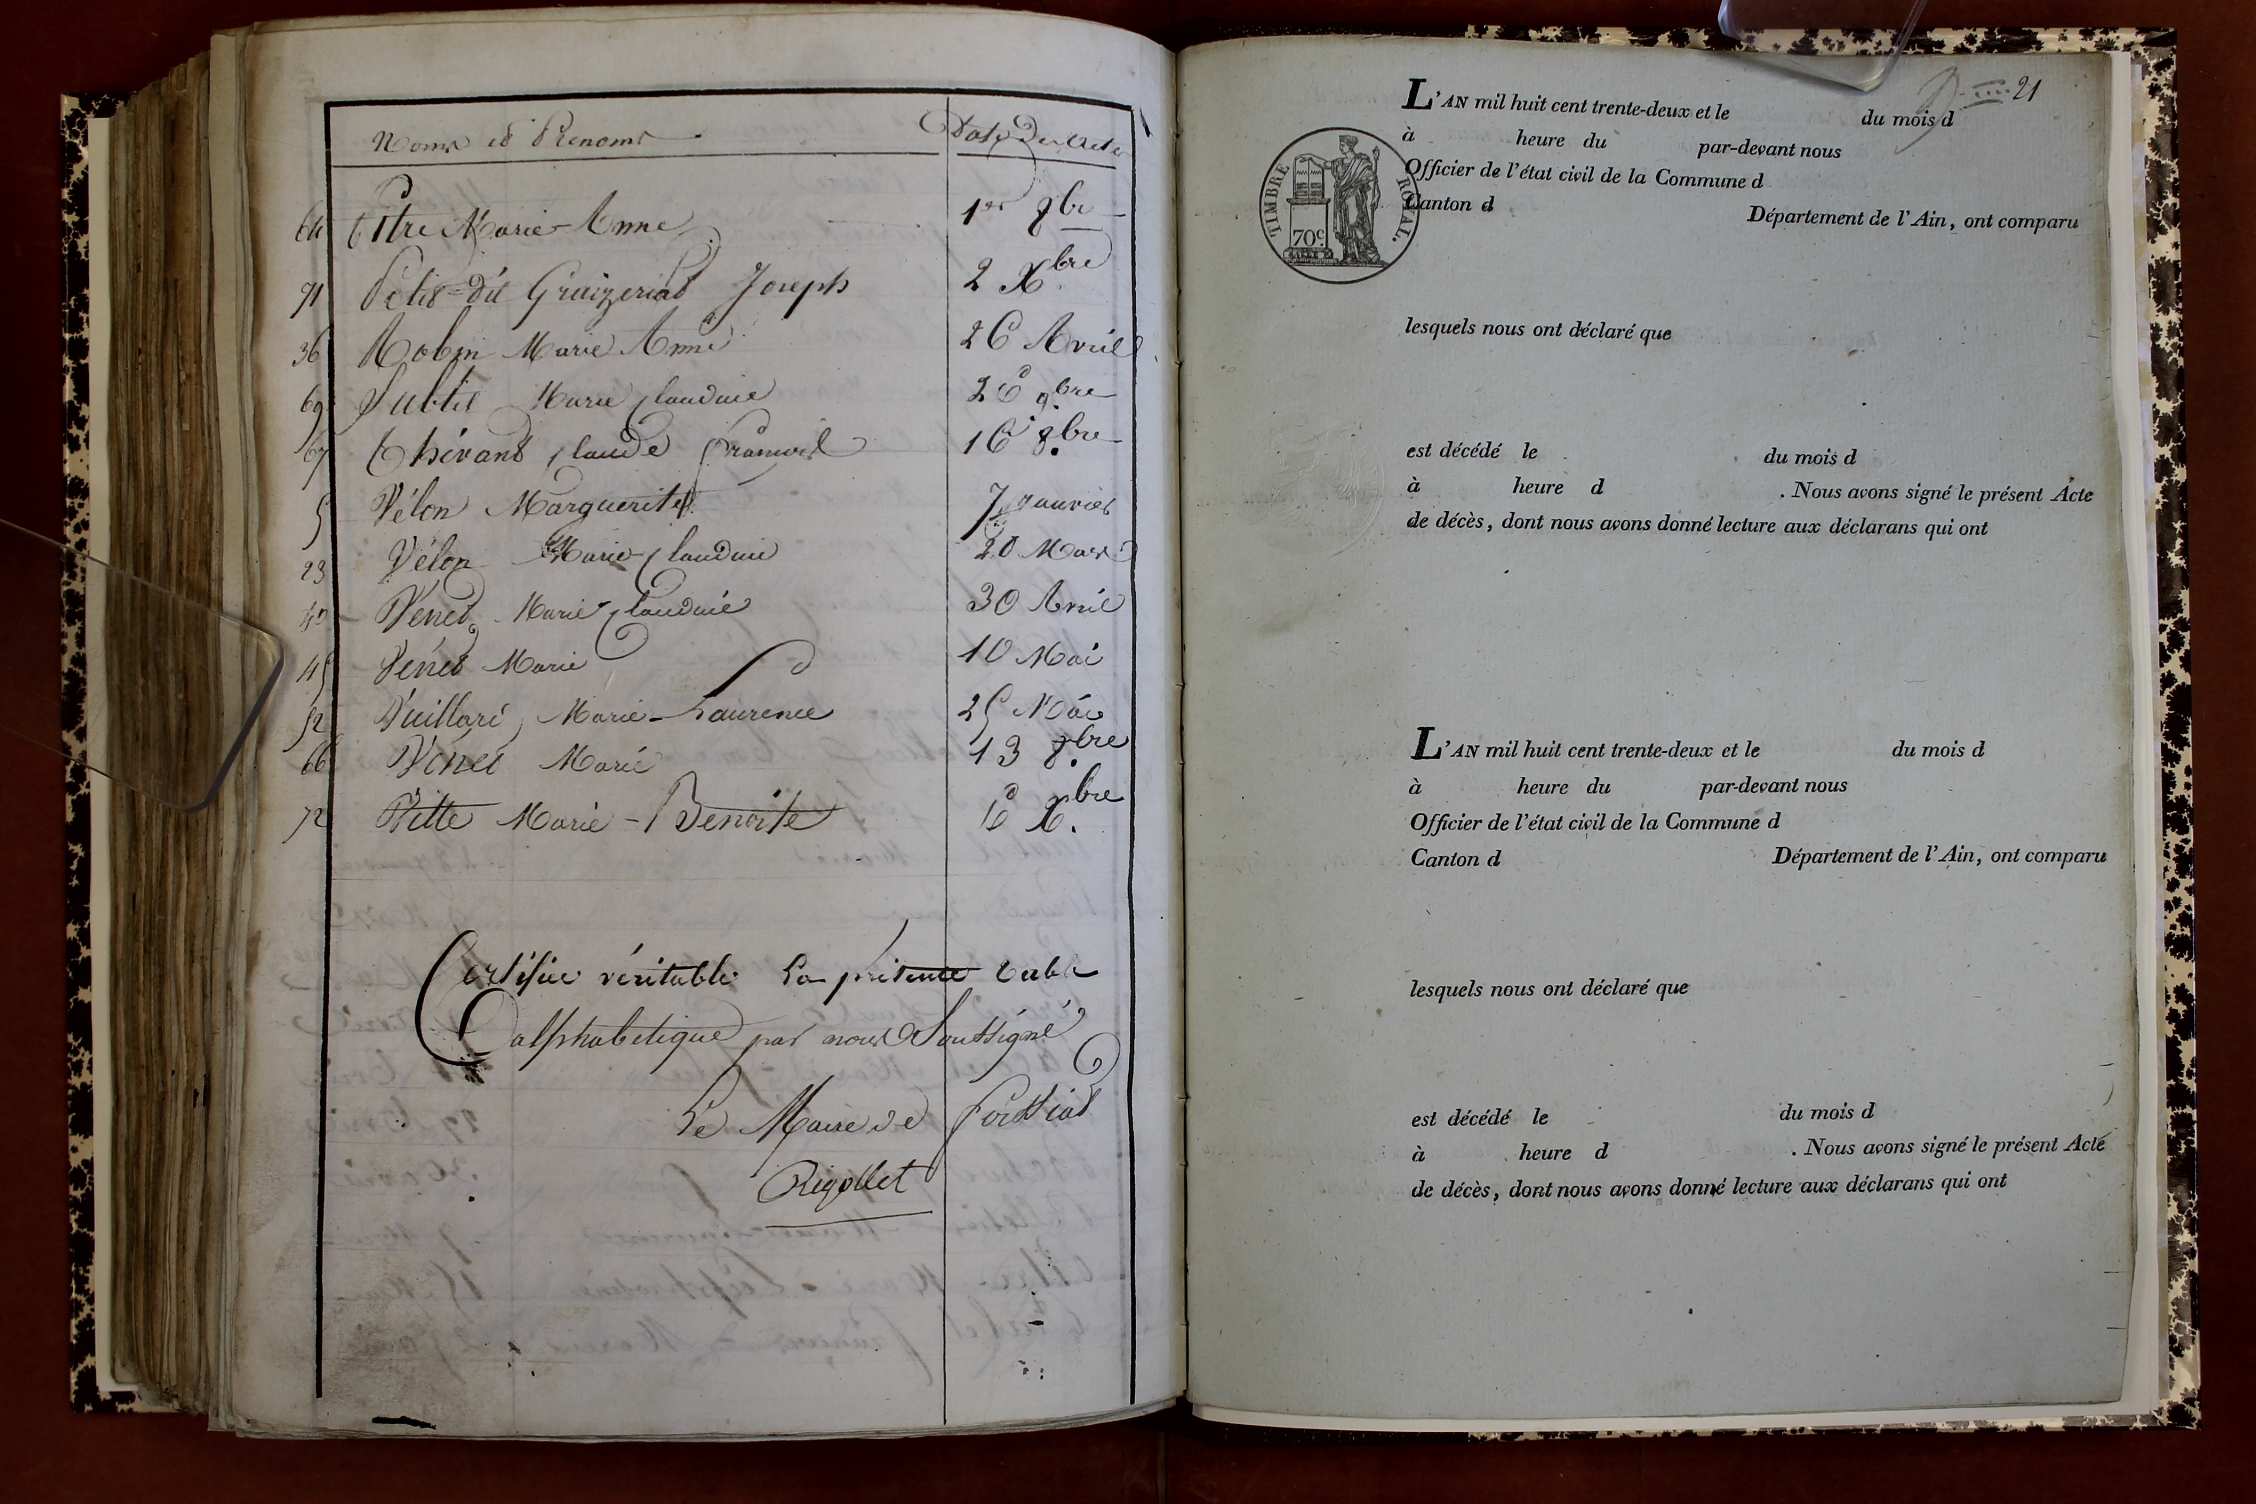 Noms et Prenoms Date des Actes
64 Titre Marie-Anne 1er 8bre
91 Petit-dit Graizeriat Joseph 2 Xbre
36 Robin Marie Anne 26 Avril
69 Subtil Marie Claudine 26 9bre
67 Thévant Claude François 16 8bre
5 Vélon Marguerite 7 Janvier
23 Vélon Marie-Claudine 20 Mars
40 Venet Marie Claudine 30 Avril
45 Venet Marie 10 Mai
52 Vuillard Marie-Laurence 25 Mai
66 Venet Marie 13 8bre
72 Vitte Marie-Benoite 6 Xbre.
Certifié véritable La présente table
alphabetique par nous Soussigné
Le Maire de Foissiat
Rigollet
21
L'AN mil huit cent trente-deux et le du mois d
à heure du par-devant nous
Officier de l'état civil de la Commune d
Canton d Département de l'Ain, ont comparu
TIMBRE ROYAL.
70c.
lesquels nous ont déclaré que
est décédé le du mois d
à heure d . Nous avons signé le présent Acte
de décès, dont nous avons donné lecture aux déclarans qui ont
L'AN mil huit cent trente-deux et le du mois d
à heure du par-devant nous
Officier de l'état civil de la Commune d
Canton d Département de l'Ain, ont comparu
lesquels nous ont déclaré que
est décédé le du mois d
à heure d . Nous avons signé le présent Acte
de décès, dont nous avons donné lecture aux déclarans qui ont